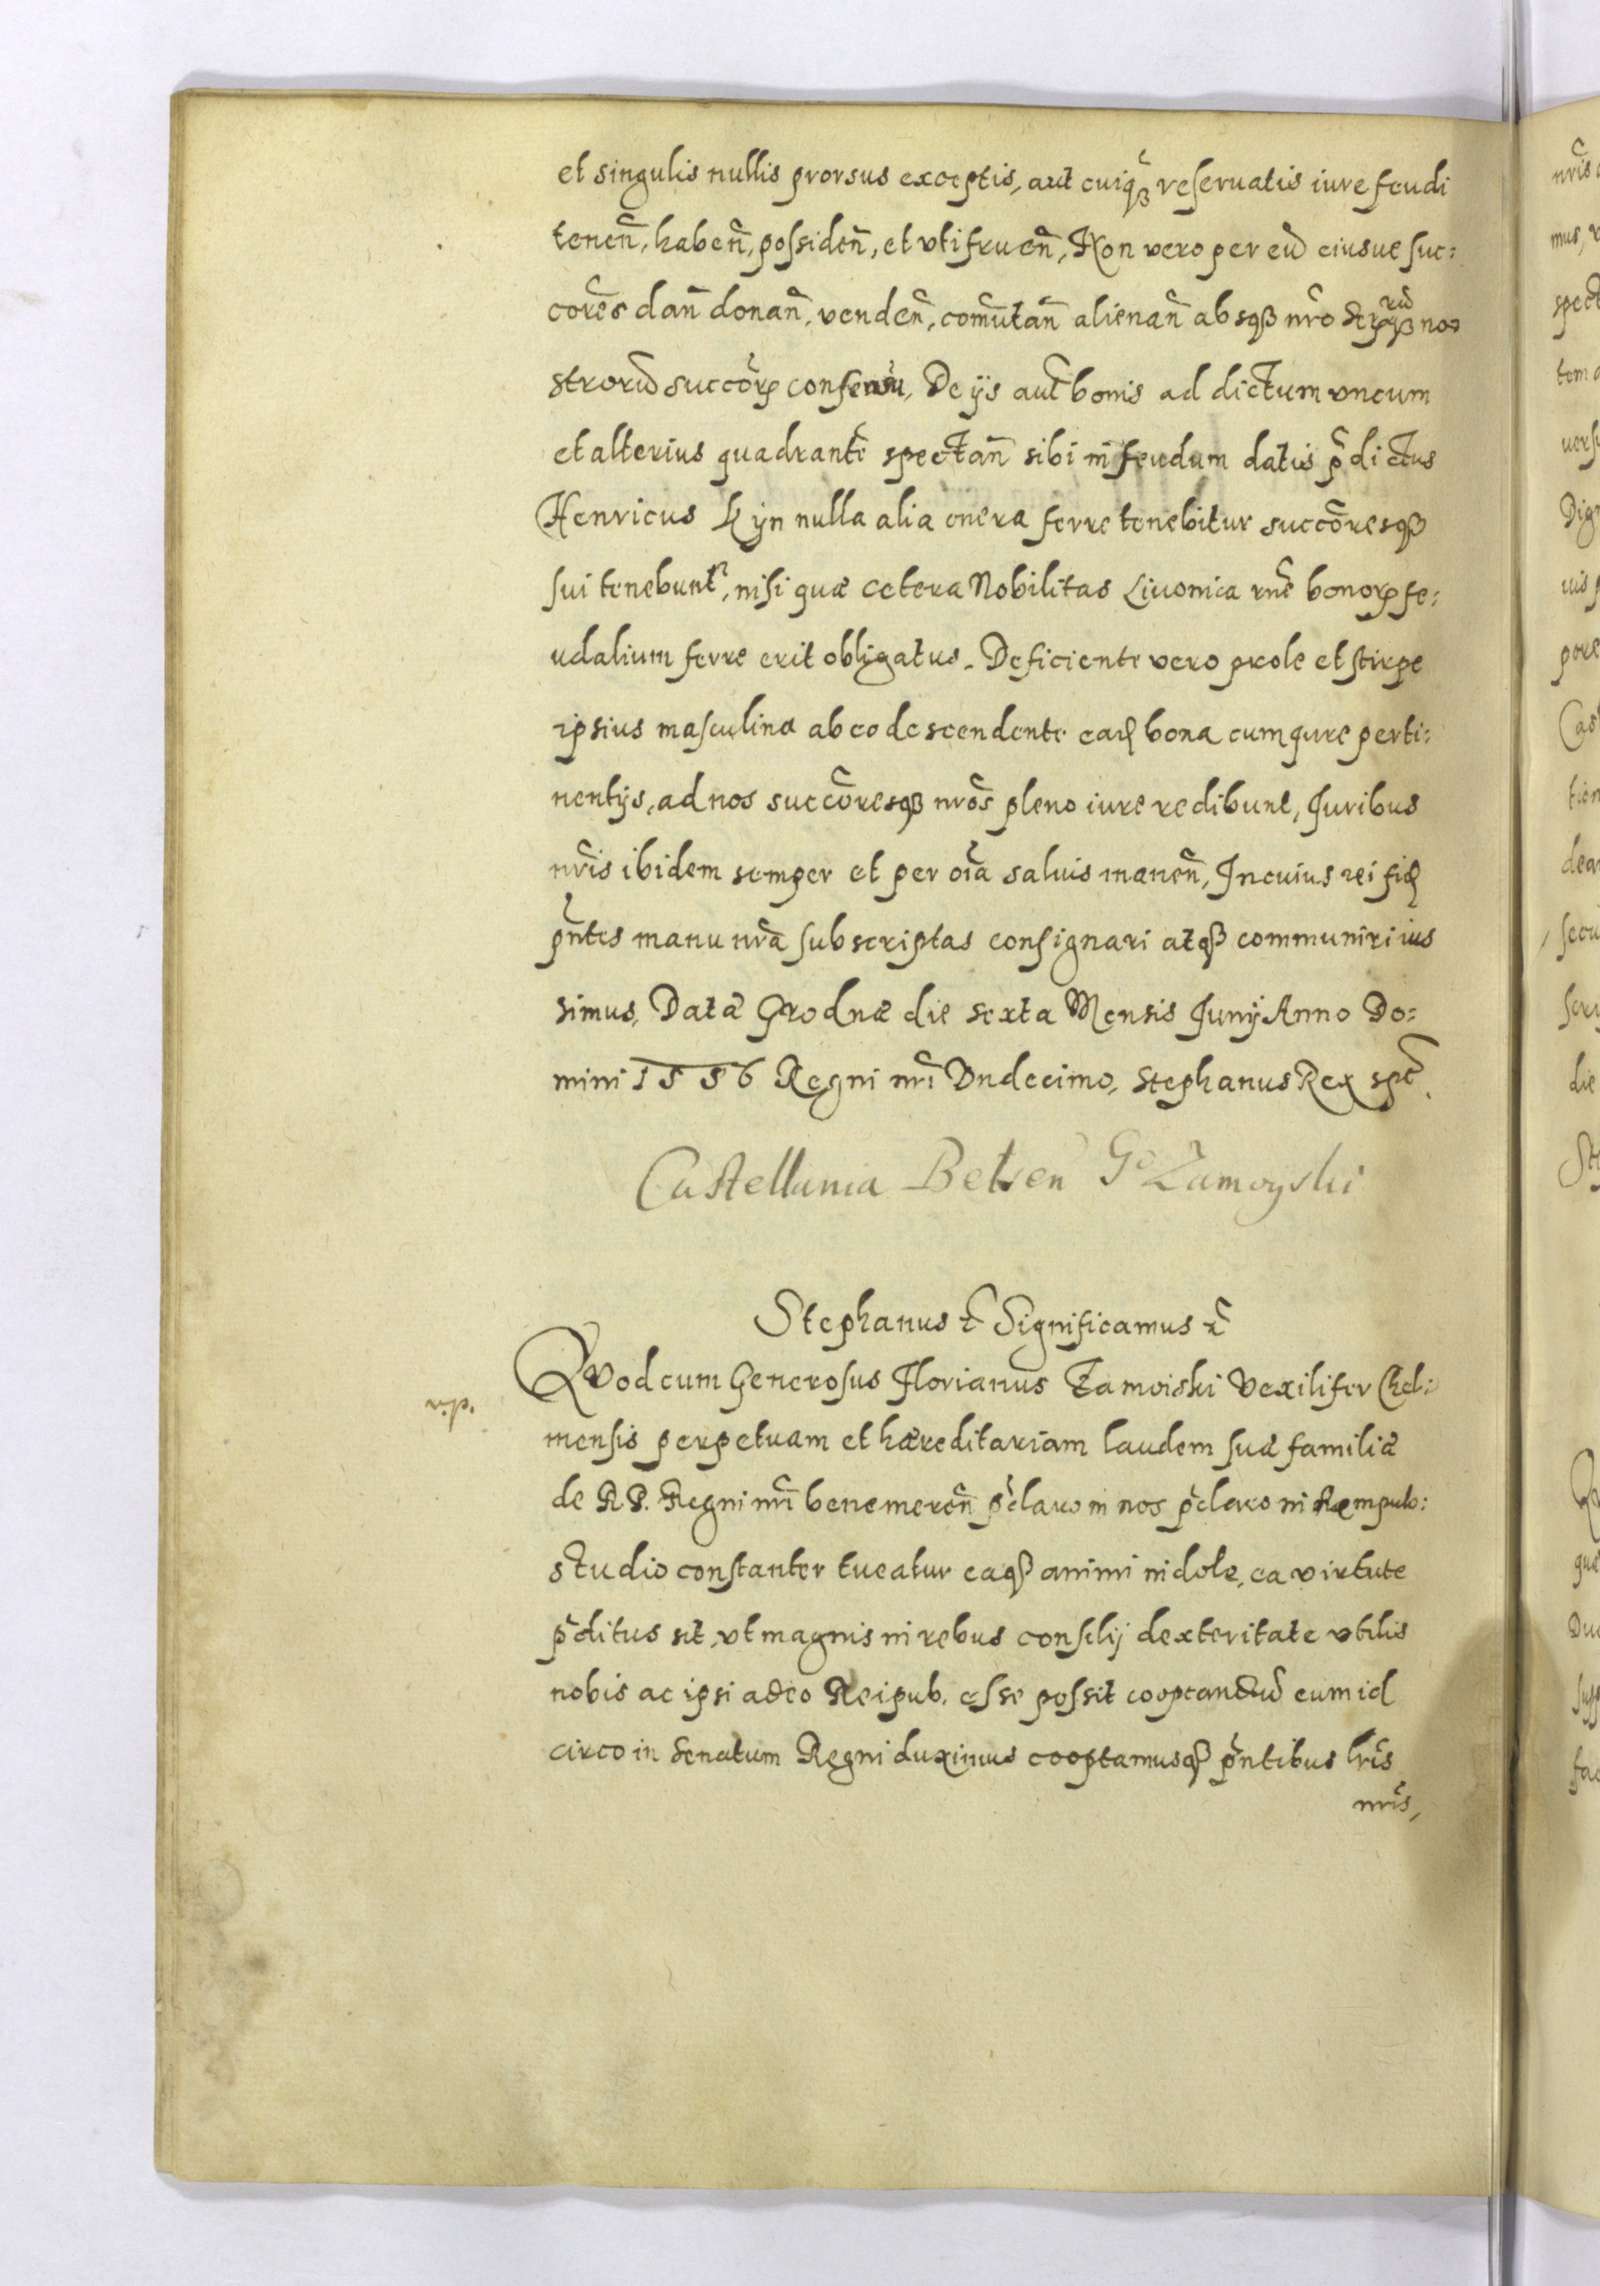 et singulis nullis prorsus exceptis, aut cuiqȝ reseruatis iure feudi
tenen̄, haben̄, possiden̄, et vtifruen̄, Non vero per eū eiusue suc:
cores̄ dan̄ donan̄, venden̄, com̄utan̄ alienan̄ absqȝ nr̄o no
strorū succōrꝝ consensu, De ijs aut̄ bonis ad dictum vncum
et alterius quadrantē spectan̄ sibi in feudum datis p̄dictus
Henricus Kijn nulla alia onera ferre tenebitur succōresqȝ
sui tenebunt̄, nisi quæ cetera Nobilitas Liuonica rn̄e bonorꝝ fe:
udalium ferre erit obligatus. Deficiente vero prole et stirpe
ipsius masculina ab eo descendente ead bona cum iure perti:
nentijs, ad nos succōresqȝ nr̄os pleno iure redibunt, Juribus
nr̄is ibidem semper et per oīa saluis manen̄, In cuius rei fid
pn̄tes manu nr̄a subscriptas consignari atqȝ communiri ius
simus, Datæ Grodnæ die sexta Mensis Junij Anno Do:
mini 1586 Regni nr̄i Vndecimo, Stephanus Rex spt̄.
Castellania Belsen̄ Gō Zamoyski
Stephanus &c̄ Significamus &c̄
Qvod cum Generosus Florianus Zamoiski Vexilifer Chel:
mensis perpetuam et hæreditariam laudem suæ familiæ
de RP. Regni nr̄i benemeren̄ p̄claro in nos p̄claro in Rempub:
studio constanter tueatur eaqȝ animi indole, ea virtute
p̄ditus sit, vt magnis in rebus consilij dexteritate vtilis
nobis ac ipsi adeo Reipub. esse possit cooptandū eum id
circo in Senatum Regni duximus cooptamusqȝ pn̄tibus lr̄is
nr̄is,